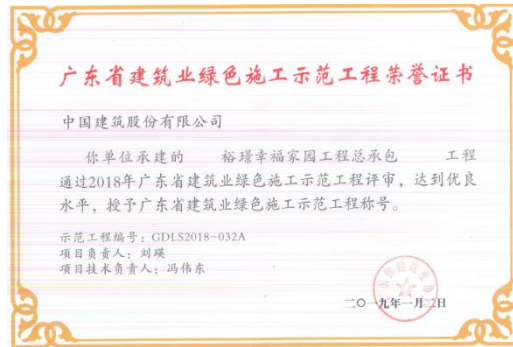 广东省建筑业绿色施工示范工程荣誉证书
中国建筑股份有限公司
你单位承建的 裕璟幸福家园工程总承包 工程
通过2018年广东省建筑业绿色施工示范工程评审，达到优良
水平，授予广东省建筑业绿色施工示范工程称号。
示范工程编号：GDLS2018-032A
项目负责人：刘瑛
项目技术负责人：冯伟东
二〇一九年一月二日